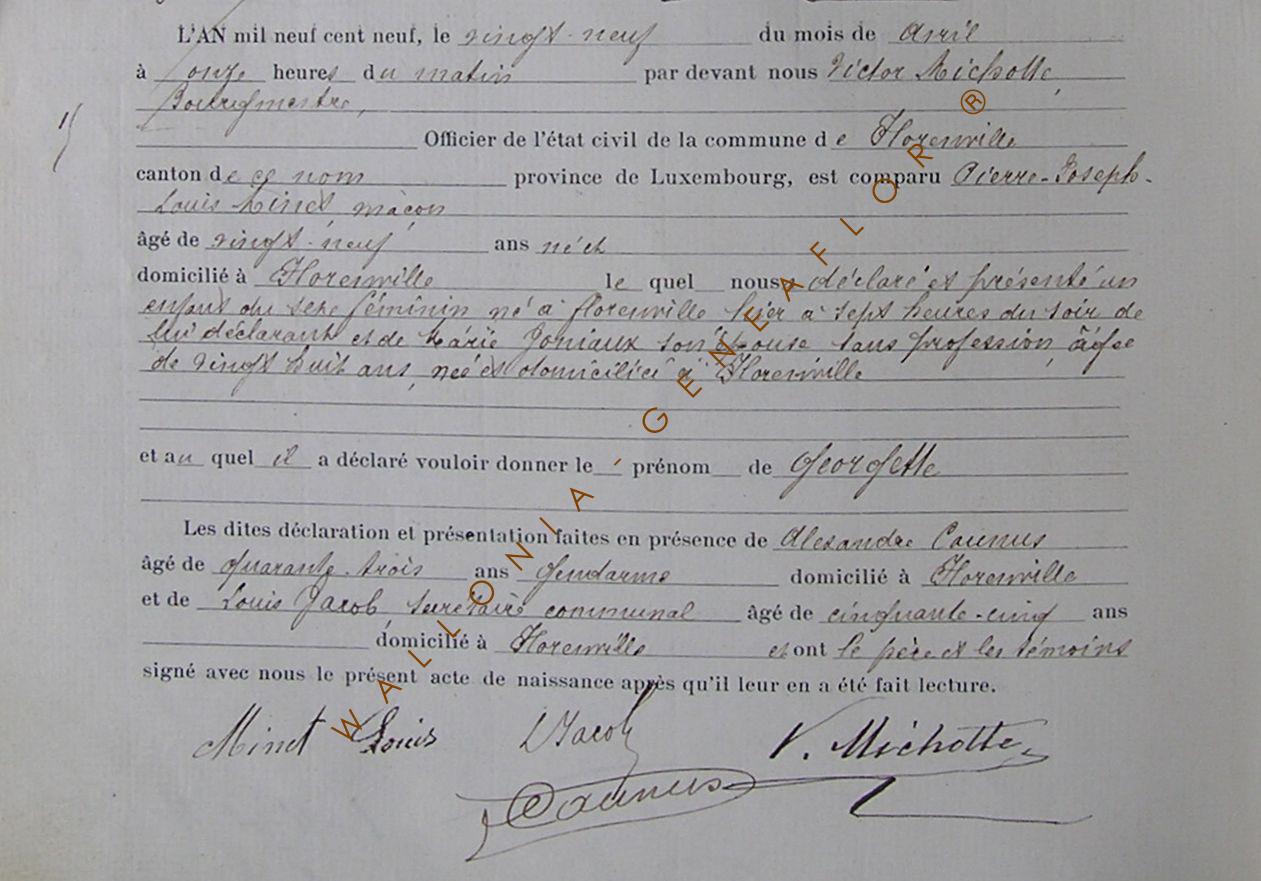 L'AN mil neuf cent neuf, le vingt-neuf du mois de Avril
à onze heures du matin par devant nous Victor Michotte,
Bourgmestre,
Officier de l'état civil de la commune de Florenville
canton de ce nom province de Luxembourg, est comparu Pierre-Joseph-
Louis Minet, maçon
âgé de vingt-neuf ans né et
domicilié à Florenville le quel nous a déclaré et présenté un
enfant du sexe féminin né à Florenville hier à sept heures du soir de
lui déclarant et de Marie Joniaux son épouse sans profession, âgée
de vingt huit ans, née et domiciliée à Florenville
et au quel il a déclaré vouloir donner le prénom de Georgette
Les dites déclaration et présentation faites en présence de Alexandre Caunus
âgé de quarante-trois ans gendarme domicilié à Florenville
et de Louis Jacob secrétaire communal âgé de cinquante-cinq ans
domicilié à Florenville et ont le père et les témoins
signé avec nous le présent acte de naissance après qu'il leur en a été fait lecture.
Minet Louis LJacob V. Michotte
Caunus
WALLONIA GENEAFLOR ®